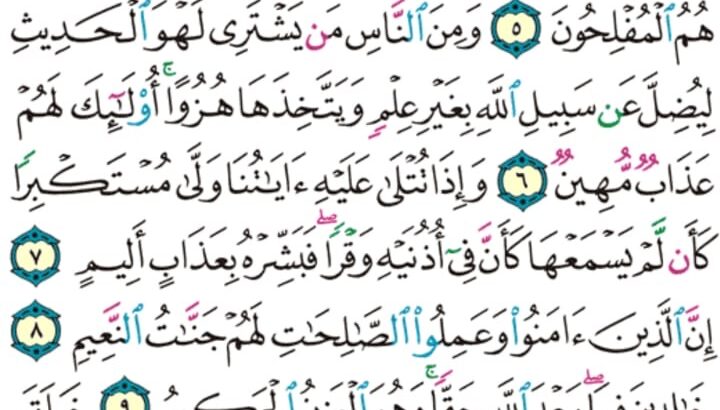 هُمُ ٱلْمُفْلِحُونَ ٥ وَمِنَ ٱلنَّاسِ مَن يَشْتَرِى لَهْوَ ٱلْحَدِيثِ
لِيُضِلَّ عَن سَبِيلِ ٱللَّهِ بِغَيْرِ عِلْمٍ وَيَتَّخِذَهَا هُزُوًا ۚ أُو۟لَـٰٓئِكَ لَهُمْ
عَذَابٌ مُّهِينٌ ٦ وَإِذَا تُتْلَىٰ عَلَيْهِ ءَايَـٰتُنَا وَلَّىٰ مُسْتَكْبِرًا
كَأَن لَّمْ يَسْمَعْهَا كَأَنَّ فِىٓ أُذُنَيْهِ وَقْرًا ۖ فَبَشِّرْهُ بِعَذَابٍ أَلِيمٍ ٧
إِنَّ ٱلَّذِينَ ءَامَنُوا۟ وَعَمِلُوا۟ ٱلصَّـٰلِحَـٰتِ لَهُمْ جَنَّـٰتُ ٱلنَّعِيمِ ٨